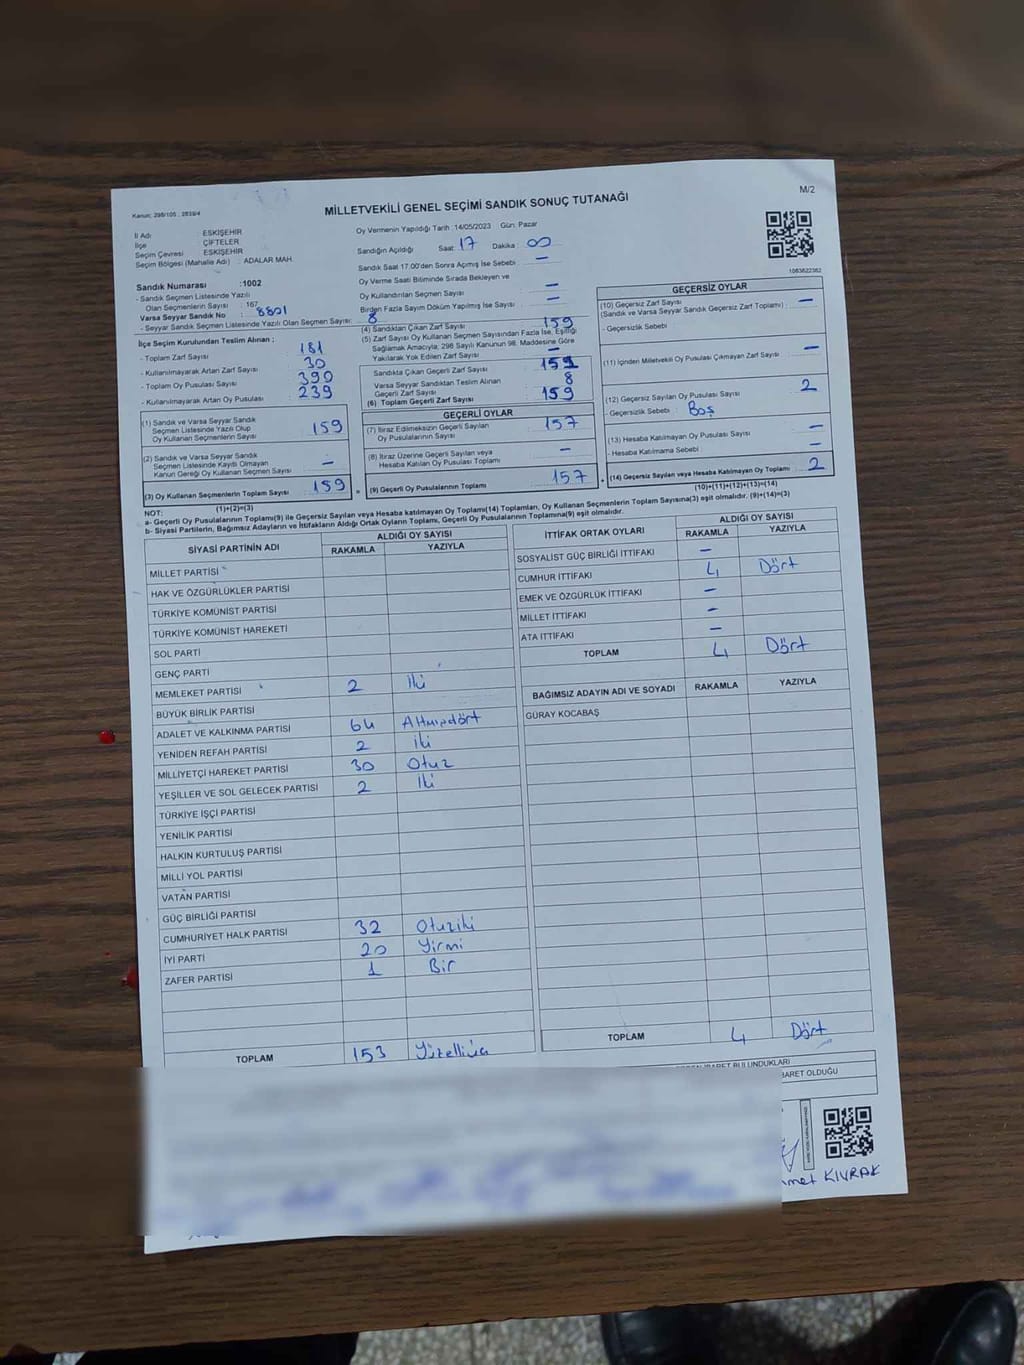 Kanun: 298/105 ; 2839/4
MİLLETVEKİLİ GENEL SEÇİMİ SANDIK SONUÇ TUTANAĞI
M/2
İl Adı : ESKİŞEHİR
İlçe : ÇİFTELER
Seçim Çevresi : ESKİŞEHİR
Seçim Bölgesi (Mahalle Adı) : ADALAR MAH.
Oy Vermenin Yapıldığı Tarih :14/05/2023 Gün: Pazar
Sandığın Açıldığı Saat : 17 Dakika : 00
Sandık Saat 17.00'den Sonra Açılmış İse Sebebi : –
Oy Verme Saati Bitiminde Sırada Bekleyen ve
Oy Kullandırılan Seçmen Sayısı : –
Birden Fazla Sayım Döküm Yapılmış İse Sayısı : –
1083822362
Sandık Numarası :1002
- Sandık Seçmen Listesinde Yazılı
Olan Seçmenlerin Sayısı : 167
Varsa Seyyar Sandık No : 8801
- Seyyar Sandık Seçmen Listesinde Yazılı Olan Seçmen Sayısı: 8
İlçe Seçim Kurulundan Teslim Alınan ;
- Toplam Zarf Sayısı : 181
- Kullanılmayarak Artan Zarf Sayısı : 30
- Toplam Oy Pusulası Sayısı : 390
- Kullanılmayarak Artan Oy Pusulası : 239
(1) Sandık ve Varsa Seyyar Sandık
Seçmen Listesinde Yazılı Olup
Oy Kullanan Seçmenlerin Sayısı : 159
(2) Sandık ve Varsa Seyyar Sandık
Seçmen Listesinde Kaydı Olmayan
Kanun Gereği Oy Kullanan Seçmen Sayısı : –
(3) Oy Kullanan Seçmenlerin Toplam Sayısı : 159
(1)+(2)=(3)
(4) Sandıktan Çıkan Zarf Sayısı : 159
(5) Zarf Sayısı Oy Kullanan Seçmen Sayısından Fazla İse, Eşitliği
Sağlamak Amacıyla; 298 Sayılı Kanunun 98. Maddesine Göre
Yakılarak Yok Edilen Zarf Sayısı : –
Sandıkta Çıkan Geçerli Zarf Sayısı : 151
Varsa Seyyar Sandıktan Teslim Alınan
Geçerli Zarf Sayısı : 8
(6) Toplam Geçerli Zarf Sayısı : 159
GEÇERLİ OYLAR
(7) İtiraz Edilmeksizin Geçerli Sayılan
Oy Pusulalarının Sayısı : 157
(8) İtiraz Üzerine Geçerli Sayılan veya
Hesaba Katılan Oy Pusulası Toplamı : –
(9) Geçerli Oy Pusulalarının Toplamı : 157
GEÇERSİZ OYLAR
(10) Geçersiz Zarf Sayısı : –
(Sandık ve Varsa Seyyar Sandık Geçersiz Zarf Toplamı)
- Geçersizlik Sebebi :
(11) İçinden Milletvekili Oy Pusulası Çıkmayan Zarf Sayısı : –
(12) Geçersiz Sayılan Oy Pusulası Sayısı : 2
- Geçersizlik Sebebi : Boş
(13) Hesaba Katılmayan Oy Pusulası Sayısı : –
- Hesaba Katılmama Sebebi : –
(14) Geçersiz Sayılan veya Hesaba Katılmayan Oy Toplamı : 2
(10)+(11)+(12)+(13)=(14)
NOT:
a- Geçerli Oy Pusulalarının Toplamı(9) ile Geçersiz Sayılan veya Hesaba katılmayan Oy Toplamı(14) Toplamları, Oy Kullanan Seçmenlerin Toplam Sayısına(3) eşit olmalıdır. (9)+(14)=(3)
b- Siyasi Partilerin, Bağımsız Adayların ve İttifakların Aldığı Ortak Oyların Toplamı, Geçerli Oy Pusulalarının Toplamına(9) eşit olmalıdır.
SİYASİ PARTİNİN ADI ALDIĞI OY SAYISI
RAKAMLA YAZIYLA
MİLLET PARTİSİ
HAK VE ÖZGÜRLÜKLER PARTİSİ
TÜRKİYE KOMÜNİST PARTİSİ
TÜRKİYE KOMÜNİST HAREKETİ
SOL PARTİ
GENÇ PARTİ
MEMLEKET PARTİSİ 2 İki
BÜYÜK BİRLİK PARTİSİ
ADALET VE KALKINMA PARTİSİ 64 Altmışdört
YENİDEN REFAH PARTİSİ 2 iki
MİLLİYETÇİ HAREKET PARTİSİ 30 Otuz
YEŞİLLER VE SOL GELECEK PARTİSİ 2 İki
TÜRKİYE İŞÇİ PARTİSİ
YENİLİK PARTİSİ
HALKIN KURTULUŞ PARTİSİ
MİLLİ YOL PARTİSİ
VATAN PARTİSİ
GÜÇ BİRLİĞİ PARTİSİ
CUMHURİYET HALK PARTİSİ 32 Otuziki
İYİ PARTİ 20 Yirmi
ZAFER PARTİSİ 1 Bir
TOPLAM 153 Yüzelliüç
İTTİFAK ORTAK OYLARI ALDIĞI OY SAYISI
RAKAMLA YAZIYLA
SOSYALİST GÜÇ BİRLİĞİ İTTİFAKI –
CUMHUR İTTİFAKI 4 Dört
EMEK VE ÖZGÜRLÜK İTTİFAKI –
MİLLET İTTİFAKI –
ATA İTTİFAKI –
TOPLAM 4 Dört
BAĞIMSIZ ADAYIN ADI VE SOYADI RAKAMLA YAZIYLA
GÜRAY KOCABAŞ
TOPLAM 4 Dört
BULUNDUKLARI
OLDUĞU
KIVRAK